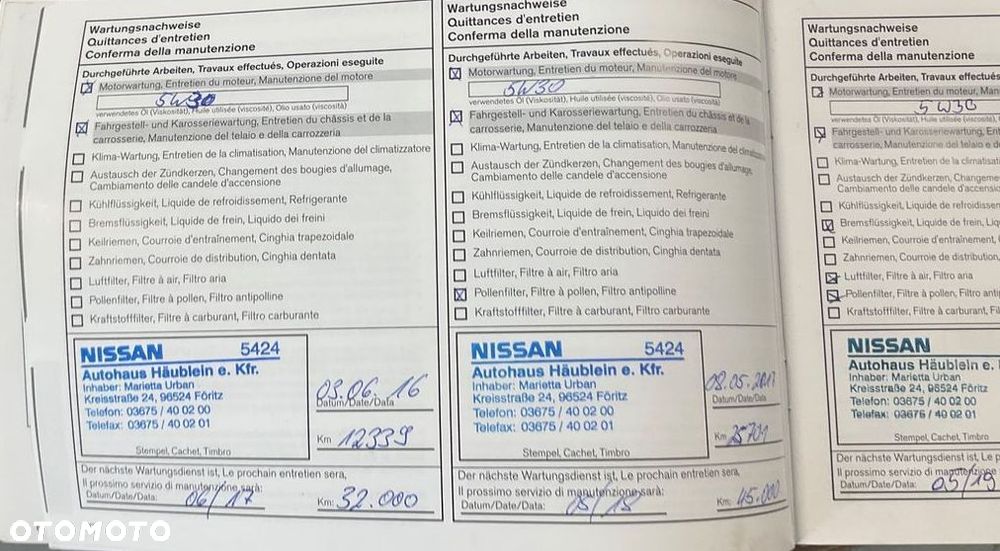 Wartungsnachweise
Quittances d'entretien
Conferma della manutenzione
Durchgeführte Arbeiten, Travaux effectués, Operazioni eseguite
Motorwartung, Entretien du moteur, Manutenzione del motore
5W30
verwendetes Öl (Viskosität), Huile utilisée (viscosité), Olio usato (viscosità)
Fahrgestell- und Karosseriewartung, Entretien du châssis et de la
carrosserie, Manutenzione del telaio e della carrozzeria
Klima-Wartung, Entretien de la climatisation, Manutenzione del climatizzatore
Austausch der Zündkerzen, Changement des bougies d'allumage,
Cambiamento delle candele d'accensione
Kühlflüssigkeit, Liquide de refroidissement, Refrigerante
Bremsflüssigkeit, Liquide de frein, Liquido dei freini
Keilriemen, Courroie d'entraînement, Cinghia trapezoidale
Zahnriemen, Courroie de distribution, Cinghia dentata
Luftfilter, Filtre à air, Filtro aria
Pollenfilter, Filtre à pollen, Filtro antipolline
Kraftstofffilter, Filtre à carburant, Filtro carburante
NISSAN 5424
Autohaus Häublein e. Kfr.
Inhaber: Marietta Urban
Kreisstraße 24, 96524 Föritz
Telefon: 03675 / 40 02 00
Telefax: 03675 / 40 02 01
Stempel, Cachet, Timbro
03.06.16
Datum/Date/Data
Km 12339
Der nächste Wartungsdienst ist, Le prochain entretien sera,
Il prossimo servizio di manutenzione sarà:
Datum/Date/Data: 06/17 Km: 32.000
Wartungsnachweise
Quittances d'entretien
Conferma della manutenzione
Durchgeführte Arbeiten, Travaux effectués, Operazioni eseguite
Motorwartung, Entretien du moteur, Manutenzione del motore
5W30
verwendetes Öl (Viskosität), Huile utilisée (viscosité), Olio usato (viscosità)
Fahrgestell- und Karosseriewartung, Entretien du châssis et de la
carrosserie, Manutenzione del telaio e della carrozzeria
Klima-Wartung, Entretien de la climatisation, Manutenzione del
Austausch der Zündkerzen, Changement des bougies d'allumage,
Cambiamento delle candele d'accensione
Kühlflüssigkeit, Liquide de refroidissement, Refrigerante
Bremsflüssigkeit, Liquide de frein, Liquido dei freini
Keilriemen, Courroie d'entraînement, Cinghia trapezoidale
Zahnriemen, Courroie de distribution, Cinghia dentata
Luftfilter, Filtre à air, Filtro aria
Pollenfilter, Filtre à pollen, Filtro antipolline
Kraftstofffilter, Filtre à carburant, Filtro carburante
NISSAN 5424
Autohaus Häublein e. Kfr.
Inhaber: Marietta Urban
Kreisstraße 24, 96524 Föritz
Telefon: 03675 / 40 02 00
Telefax: 03675 / 40 02 01
Stempel, Cachet, Timbro
08.05.2017
Datum/Date/Data
Km 25701
Der nächste Wartungsdienst ist, Le prochain entretien sera,
Il prossimo servizio di manutenzione sarà:
Datum/Date/Data: 05/18 Km: 45.000
Wartungsnachweise
Quittances d'entretien
Conferma della manutenzione
Durchgeführte Arbeiten, Travaux effectués
Motorwartung, Entretien du moteur, Man
5W30
verwendetes Öl (Viskosität), Huile utilisée (viscosité), O
Fahrgestell- und Karosseriewartung, En
carrosserie, Manutenzione del telaio e d
Klima-Wartung, Entretien de la climatisat
Austausch der Zündkerzen, Changeme
Cambiamento delle candele d'accensio
Kühlflüssigkeit, Liquide de refroidissem
Bremsflüssigkeit, Liquide de frein, Liq
Keilriemen, Courroie d'entraînement,
Zahnriemen, Courroie de distribution,
Luftfilter, Filtre à air, Filtro aria
Pollenfilter, Filtre à pollen, Filtro anti
Kraftstofffilter, Filtre à carburant, Fil
NISSAN
Autohaus Häublein e.
Inhaber: Marietta Urban
Kreisstraße 24, 96524 Föritz
Telefon: 03675 / 40 02 00
Telefax: 03675 / 40 02 01
Stempel, Cachet, Timbro
Der nächste Wartungsdienst ist, Le p
Il prossimo servizio di manutenzione
Datum/Date/Data: 05/19
OTOMOTO